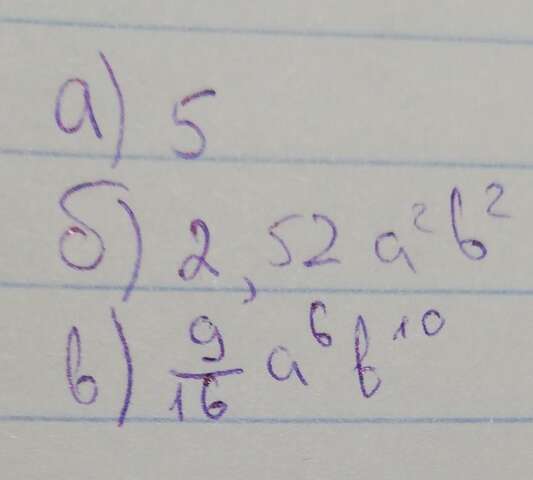 а) 5
б) 2,52 a²b²
в) 9/16 a⁶b¹⁰